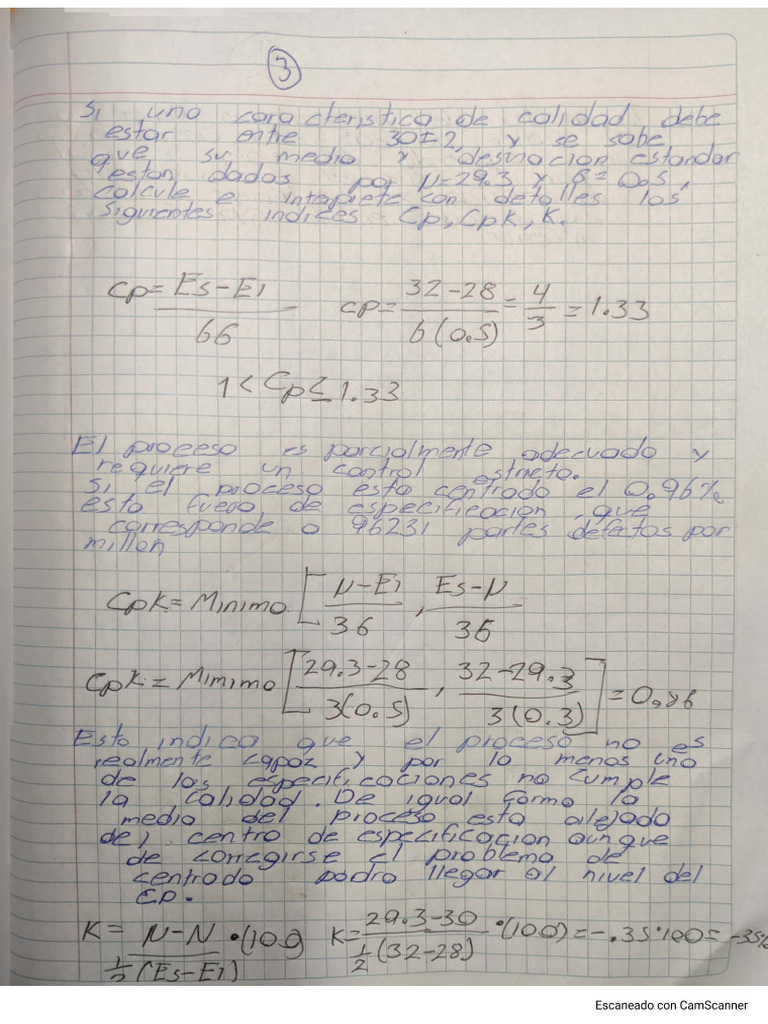 3
Si una caracteristica de calidad debe
estar entre 30±2, y se sabe
que su media y desviación estandar
estan dados por N=29.3 y 6=0.5,
calcule e interprete con detalles los
siguientes indices Cp, Cpk, K.
Cp= Es-Ei / 66 cp= 32-28 / 6(0.5) = 4/3 = 1.33
1 < Cp ≤ 1.33
El proceso es parcialmente adecuado y
requiere un control estricto.
Si el proceso esta centrado el 0.96%
esta fuera de especificacion, que
corresponde a 96231 partes defectos por
millon
Cpk = Minimo [ N-Ei / 36 , Es-N / 36
Cpk = Minimo [ 29.3-28 / 3(0.5) , 32-29.3 / 3(0.3) ] = 0.86
Esto indica que el proceso no es
realmente capaz y por lo menos una
de las especificaciones no cumple
la calidad. De igual forma la
media del proceso esta alejada
del centro de especificacion aunque
de corregirse el problema de
centrado podra llegar al nivel del
cp.
K = N-N / ½(Es-Ei) •(100) K= 29.3-30 / ½(32-28) •(100) = -.35•100 = -35%
Escaneado con CamScanner